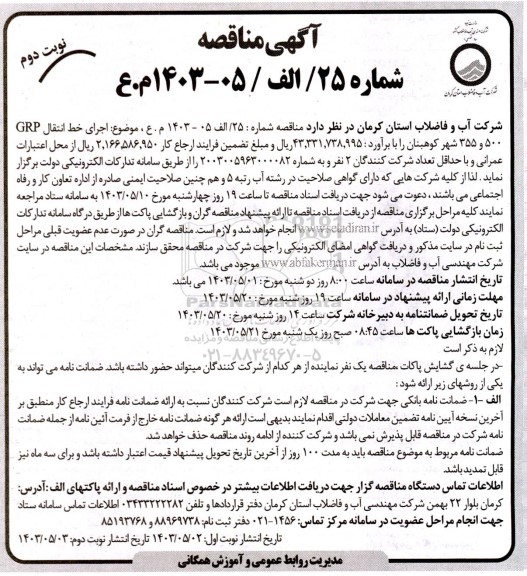 آگهی مناقصه
نوبت دوم
شماره ۲۵/ الف / ۰۵-۱۴۰۳م.ع
شرکت آب و فاضلاب استان کرمان
شرکت آب و فاضلاب استان کرمان در نظر دارد مناقصه شماره : ۲۵/ الف ۰۵ - ۱۴۰۳ م . ع ، موضوع: اجرای خط انتقال GRP
۵۰۰ و ۳۵۵ شهر کوهبنان را با برآورد : ۴۳,۳۳۱,۷۳۸,۹۹۵ریال و مبلغ تضمین فرایند ارجاع کار ۲,۱۶۶,۵۸۶,۹۵۰ ریال از محل اعتبارات
عمرانی و با حداقل تعداد شرکت کنندگان ۲ نفر و به شماره ۲۰۰۳۰۰۵۹۶۳۰۰۰۰۸۲ را از طریق سامانه تدارکات الکترونیکی دولت برگزار
نماید . لذا از کلیه شرکت هایی که دارای گواهی صلاحیت در رشته آب رتبه ۵ و هم چنین صلاحیت ایمنی صادره از اداره تعاون کار و رفاه
اجتماعی می باشند ، دعوت می شود جهت دریافت اسناد مناقصه تا ساعت ۱۹ روز چهارشنبه مورخ ۱۴۰۳/۰۵/۱۰ به سامانه ستاد مراجعه
نمایند کلیه مراحل برگزاری مناقصه از دریافت اسناد مناقصه تا ارائه پیشنهاد مناقصه گران و بازگشایی پاکت ها از طریق درگاه سامانه تدارکات
الکترونیکی دولت (ستاد) به آدرس www.setadiran.ir انجام خواهد شد و لازم است. مناقصه گران در صورت عدم عضویت قبلی مراحل
ثبت نام در سایت مذکور و دریافت گواهی امضای الکترونیکی را جهت شرکت در مناقصه محقق سازند. مشخصات این مناقصه در سایت
شرکت مهندسی آب و فاضلاب به آدرس www.abfakerman.ir موجود می باشد.
تاریخ انتشار مناقصه در سامانه ساعت ۸:۰۰ روز دو شنبه مورخ : ۱۴۰۳/۰۵/۰۱ می باشد.
مهلت زمانی ارائه پیشنهاد در سامانه ساعت ۱۹ روز شنبه مورخ : ۱۴۰۳/۰۵/۲۰
تاریخ تحویل ضمانتنامه به دبیرخانه شرکت ساعت ۱۴ روز شنبه مورخ : ۱۴۰۳/۰۵/۲۰
زمان بازگشایی پاکت ها ساعت ۰۸:۴۵ صبح روز یک شنبه مورخ ۱۴۰۳/۰۵/۲۱
لازم به ذکر است
-در جلسه ی گشایش پاکات ،مناقصه یک نفر نماینده از هر کدام از شرکت کنندگان میتواند حضور داشته باشد. ضمانت نامه می تواند به
یکی از روشهای زیر ارائه شود :
الف -۱- ضمانت نامه بانکی جهت شرکت در مناقصه لازم است شرکت کنندگان نسبت به ارائه ضمانت نامه فرایند ارجاع کار منطبق بر
آخرین نسخه آیین نامه تضمین معاملات دولتی اقدام نمایند بدیهی است ارائه هر گونه ضمانت نامه خارج از فرمت آئین نامه از جمله ضمانت
نامه شرکت در مناقصه قابل پذیرش نمی باشد و شرکت کننده از ادامه روند مناقصه حذف خواهد شد.
ضمانت نامه مربوط به موضوع مناقصه باید به مدت ۱۰۰ روز از آخرین تاریخ تحویل پیشنهاد قیمت اعتبار داشته باشد و برای سه ماه نیز
قابل تمدید باشد.
اطلاعات تماس دستگاه مناقصه گزار جهت دریافت اطلاعات بیشتر در خصوص اسناد مناقصه و ارائه پاکتهای الف :آدرس:
کرمان بلوار ۲۲ بهمن شرکت مهندسی آب و فاضلاب استان کرمان دفتر قراردادها و تلفن ۰۳۴۳۳۲۲۲۲۸۲ اطلاعات تماس سامانه ستاد
جهت انجام مراحل عضویت در سامانه مرکز تماس: ۱۴۵۶-۰۲۱ دفتر ثبت نام: ۸۸۹۶۹۷۳۸ و ۸۵۱۹۳۷۶۸
تاریخ انتشار نوبت اول: ۱۴۰۳/۰۵/۰۲ تاریخ انتشار نوبت دوم: ۱۴۰۳/۰۵/۰۳
مدیریت روابط عمومی و آموزش همگانی